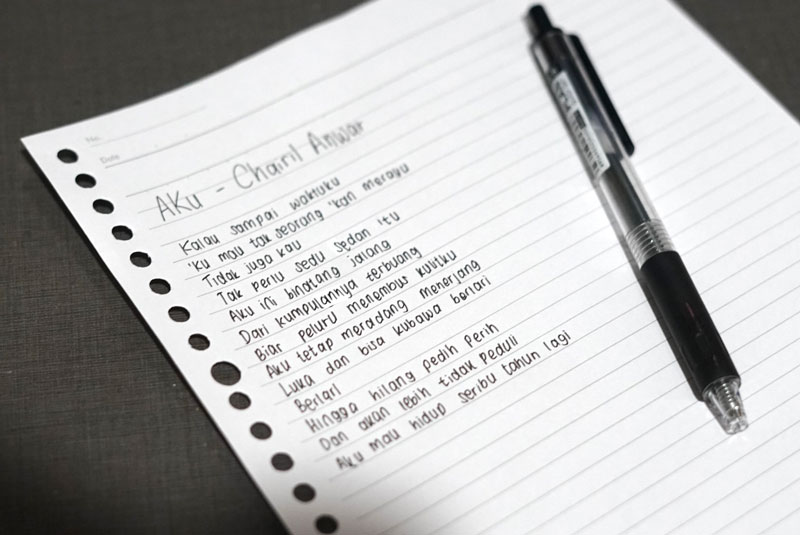 No.
Date
AKu - Chairil Anwar
Kalau sampai waktuku
'Ku mau tak seorang 'kan merayu
Tidak juga kau
Tak perlu sedu sedan 'itu
Aku ini binatang jalang
Dari kumpulannya terbuang
Biar peluru menembus kulitku
Aku tetap meradang menerjang
Luka dan bisa kubawa berlari
Berlari
Hingga hilang pedih perih
Dan akan lebih tidak peduli
Aku mau hidup seribu tahun lagi